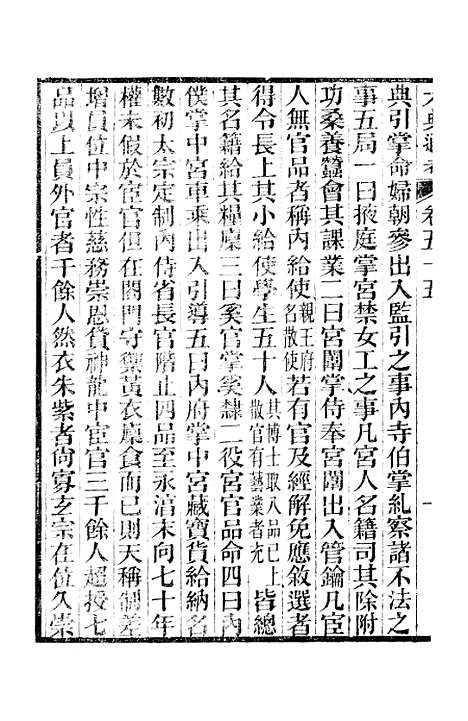 典引掌命婦朝參出入監引之事內寺伯掌糺察諸不法之
事五局一曰掖庭掌宮禁女工之事凡宮人名籍司其除附
功桑養蠶會其課業二曰宮闈掌侍奉宮闈出入管鑰凡宦
人無官品者稱內給使親王府名散使若有官及經解免應敘選者
得令長上其小給使學生五十人其博士取八品已上散官有藝業者充皆總
其名籍給其糧廩三曰奚官掌奚隸二役宮官品命四曰內
僕掌中宮車乘出入引導五曰內府掌中宮藏寶貨給納名
數初太宗定制內侍省長官階止四品至永淳末向七十年
權未假於宦官但在閤門守禦黃衣廩食而已則天稱制差
增員位中宗性慈務崇恩貸神龍中宦官三千餘人超授七
品以上員外官者千餘人然衣朱紫者尙寡玄宗在位久崇